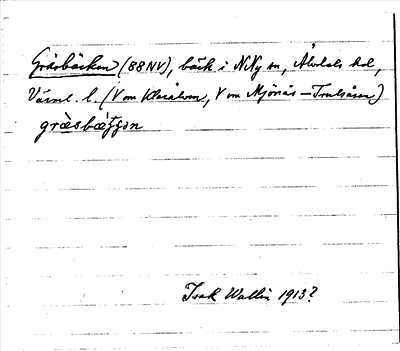 Gräsbäcken (88NV), bäck i N.Ny sn, Älvdals hd,
Värml. l. (V om Klarälven, V om Mjönäs – Trulsåsen)
græ̀sbæ̀ꞔən
Isak Wallin 1913?